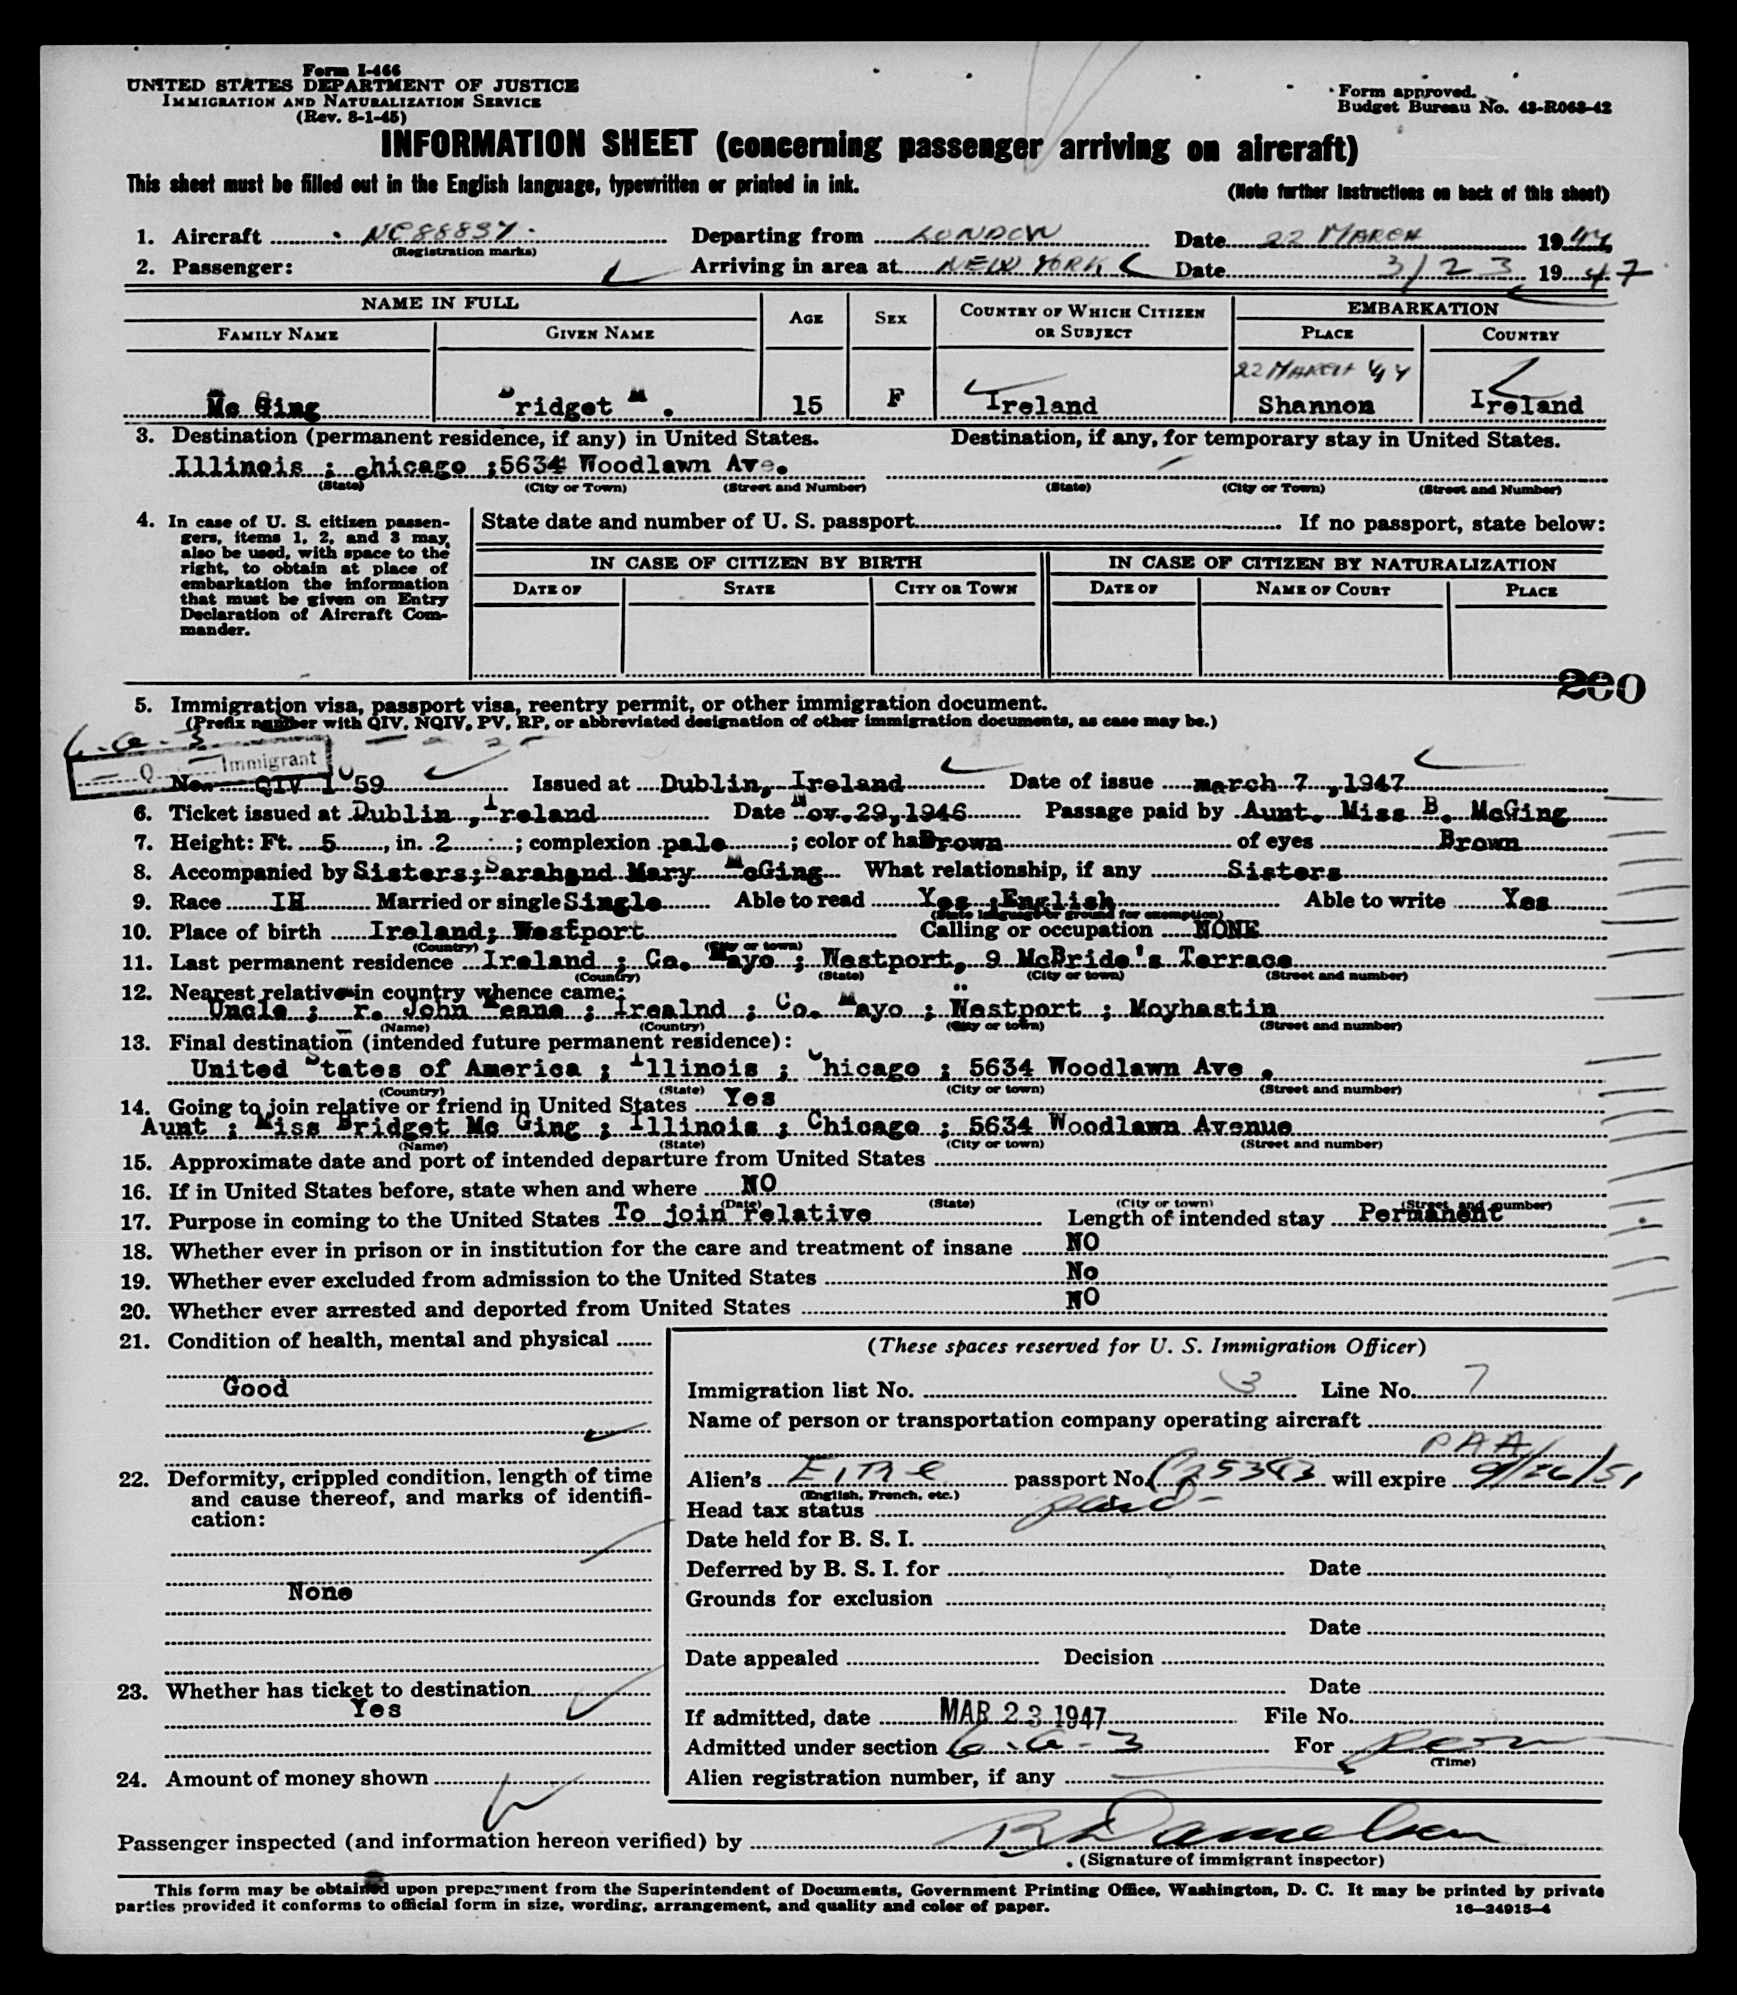 Form I-466
UNITED STATES DEPARTMENT OF JUSTICE
IMMIGRATION AND NATURALIZATION SERVICE
(Rev. 8-1-45)
Form approved.
Budget Bureau No. 43-R068-42
INFORMATION SHEET (concerning passenger arriving on aircraft)
This sheet must be filled out in the English language, typewritten or printed in ink.
(Note further instructions on back of this sheet)
1. Aircraft NC88837 Departing from LONDON Date 22 MARCH 1947
(Registration marks)
2. Passenger: Arriving in area at NEW YORK Date 3/23 1947
NAME IN FULL AGE SEX COUNTRY OF WHICH CITIZEN OR SUBJECT EMBARKATION
FAMILY NAME GIVEN NAME PLACE COUNTRY
22 MARCH 47
Mc Ging Bridget M. 15 F Ireland Shannon Ireland
3. Destination (permanent residence, if any) in United States. Destination, if any, for temporary stay in United States.
Illinois ; chicago ;5634 Woodlawn Ave.
(State) (City or Town) (Street and Number) (State) (City or Town) (Street and Number)
4. In case of U. S. citizen passengers, items 1, 2, and 3 may also be used, with space to the right, to obtain at place of embarkation the information that must be given on Entry Declaration of Aircraft Commander.
State date and number of U. S. passport If no passport, state below:
IN CASE OF CITIZEN BY BIRTH IN CASE OF CITIZEN BY NATURALIZATION
DATE OF STATE CITY OR TOWN DATE OF NAME OF COURT PLACE
200
5. Immigration visa, passport visa, reentry permit, or other immigration document.
(Prefix number with QIV, NQIV, PV, RP, or abbreviated designation of other immigration documents, as case may be.)
6.a.3
Q Immigrant
No. QIV 1059 Issued at Dublin, Ireland Date of issue march 7, 1947
6. Ticket issued at Dublin, Ireland Date Nov. 29, 1946 Passage paid by Aunt. Miss B. McGing
7. Height: Ft. 5, in. 2; complexion pale; color of hair Brown of eyes Brown
8. Accompanied by Sisters; Sarah and Mary McGing What relationship, if any Sisters
9. Race IH Married or single Single Able to read Yes ;English Able to write Yes
(State language or ground for exemption)
10. Place of birth Ireland; Westport Calling or occupation NONE
(Country) (City or town)
11. Last permanent residence Ireland ; Co. Mayo ; Westport, 9 McBride's Terrace
(Country) (State) (City or town) (Street and number)
12. Nearest relative in country whence came:
Uncle ; r. John Keane ; Irealnd ; Co. Mayo ; Westport ; Moyhastin
(Name) (Country) (City or town) (Street and number)
13. Final destination (intended future permanent residence):
United States of America ; Illinois ; Chicago ; 5634 Woodlawn Ave .
(Country) (State) (City or town) (Street and number)
14. Going to join relative or friend in United States Yes
Aunt ; Miss Bridget Mc Ging ; Illinois ; Chicago ; 5634 Woodlawn Avenue
(Name) (State) (City or town) (Street and number)
15. Approximate date and port of intended departure from United States
16. If in United States before, state when and where NO
(Date) (State) (City or town) (Street and number)
17. Purpose in coming to the United States To join relative Length of intended stay Permanent
18. Whether ever in prison or in institution for the care and treatment of insane NO
19. Whether ever excluded from admission to the United States No
20. Whether ever arrested and deported from United States NO
21. Condition of health, mental and physical
Good
22. Deformity, crippled condition, length of time and cause thereof, and marks of identification:
None
23. Whether has ticket to destination
Yes
24. Amount of money shown
(These spaces reserved for U. S. Immigration Officer)
Immigration list No. 3 Line No. 7
Name of person or transportation company operating aircraft
PAA
Alien's EIRE passport No. will expire 9/26/51
(English, French, etc.)
Head tax status paid
Date held for B. S. I.
Deferred by B. S. I. for Date
Grounds for exclusion
Date
Date appealed Decision
Date
If admitted, date MAR 23 1947 File No.
Admitted under section 6.a-3 For perm
(Time)
Alien registration number, if any
Passenger inspected (and information hereon verified) by
(Signature of immigrant inspector)
This form may be obtained upon prepayment from the Superintendent of Documents, Government Printing Office, Washington, D. C. It may be printed by private
parties provided it conforms to official form in size, wording, arrangement, and quality and color of paper.
16—24915-4